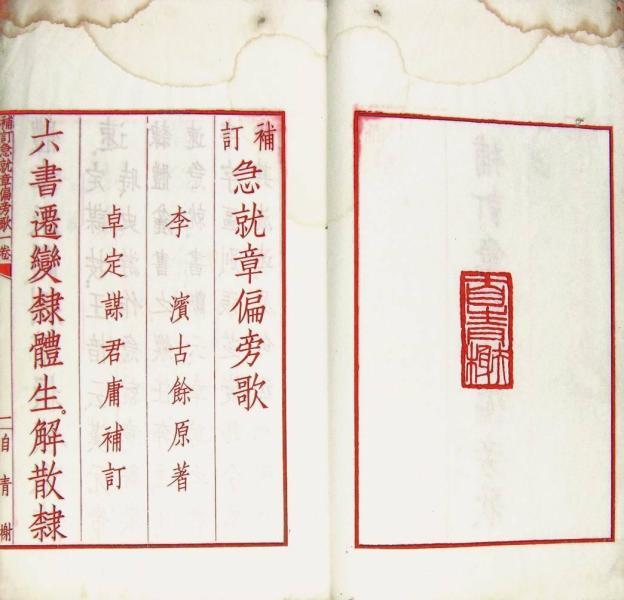 自青榭
補訂
急就章偏旁歌
李 濱古餘原著
卓定謀君庸補訂
六書遷變隸體生。解散隸
補訂急就章偏旁歌一卷
一
自青榭